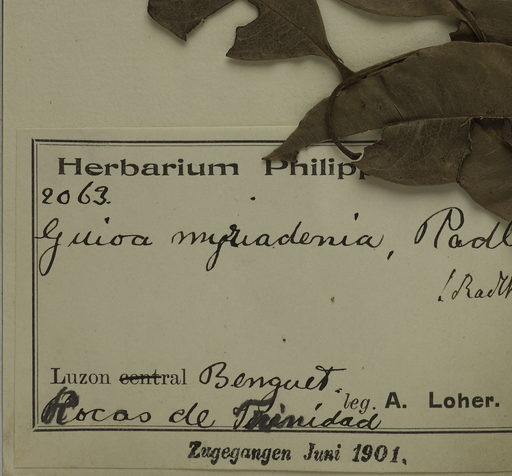 Herbarium Philipp
2063.
Guioa myriadenia, Radl
! Radlk
Luzon central Benguet.
leg. A. Loher.
Rocas de Trinidad
Zugegangen Juni 1901.